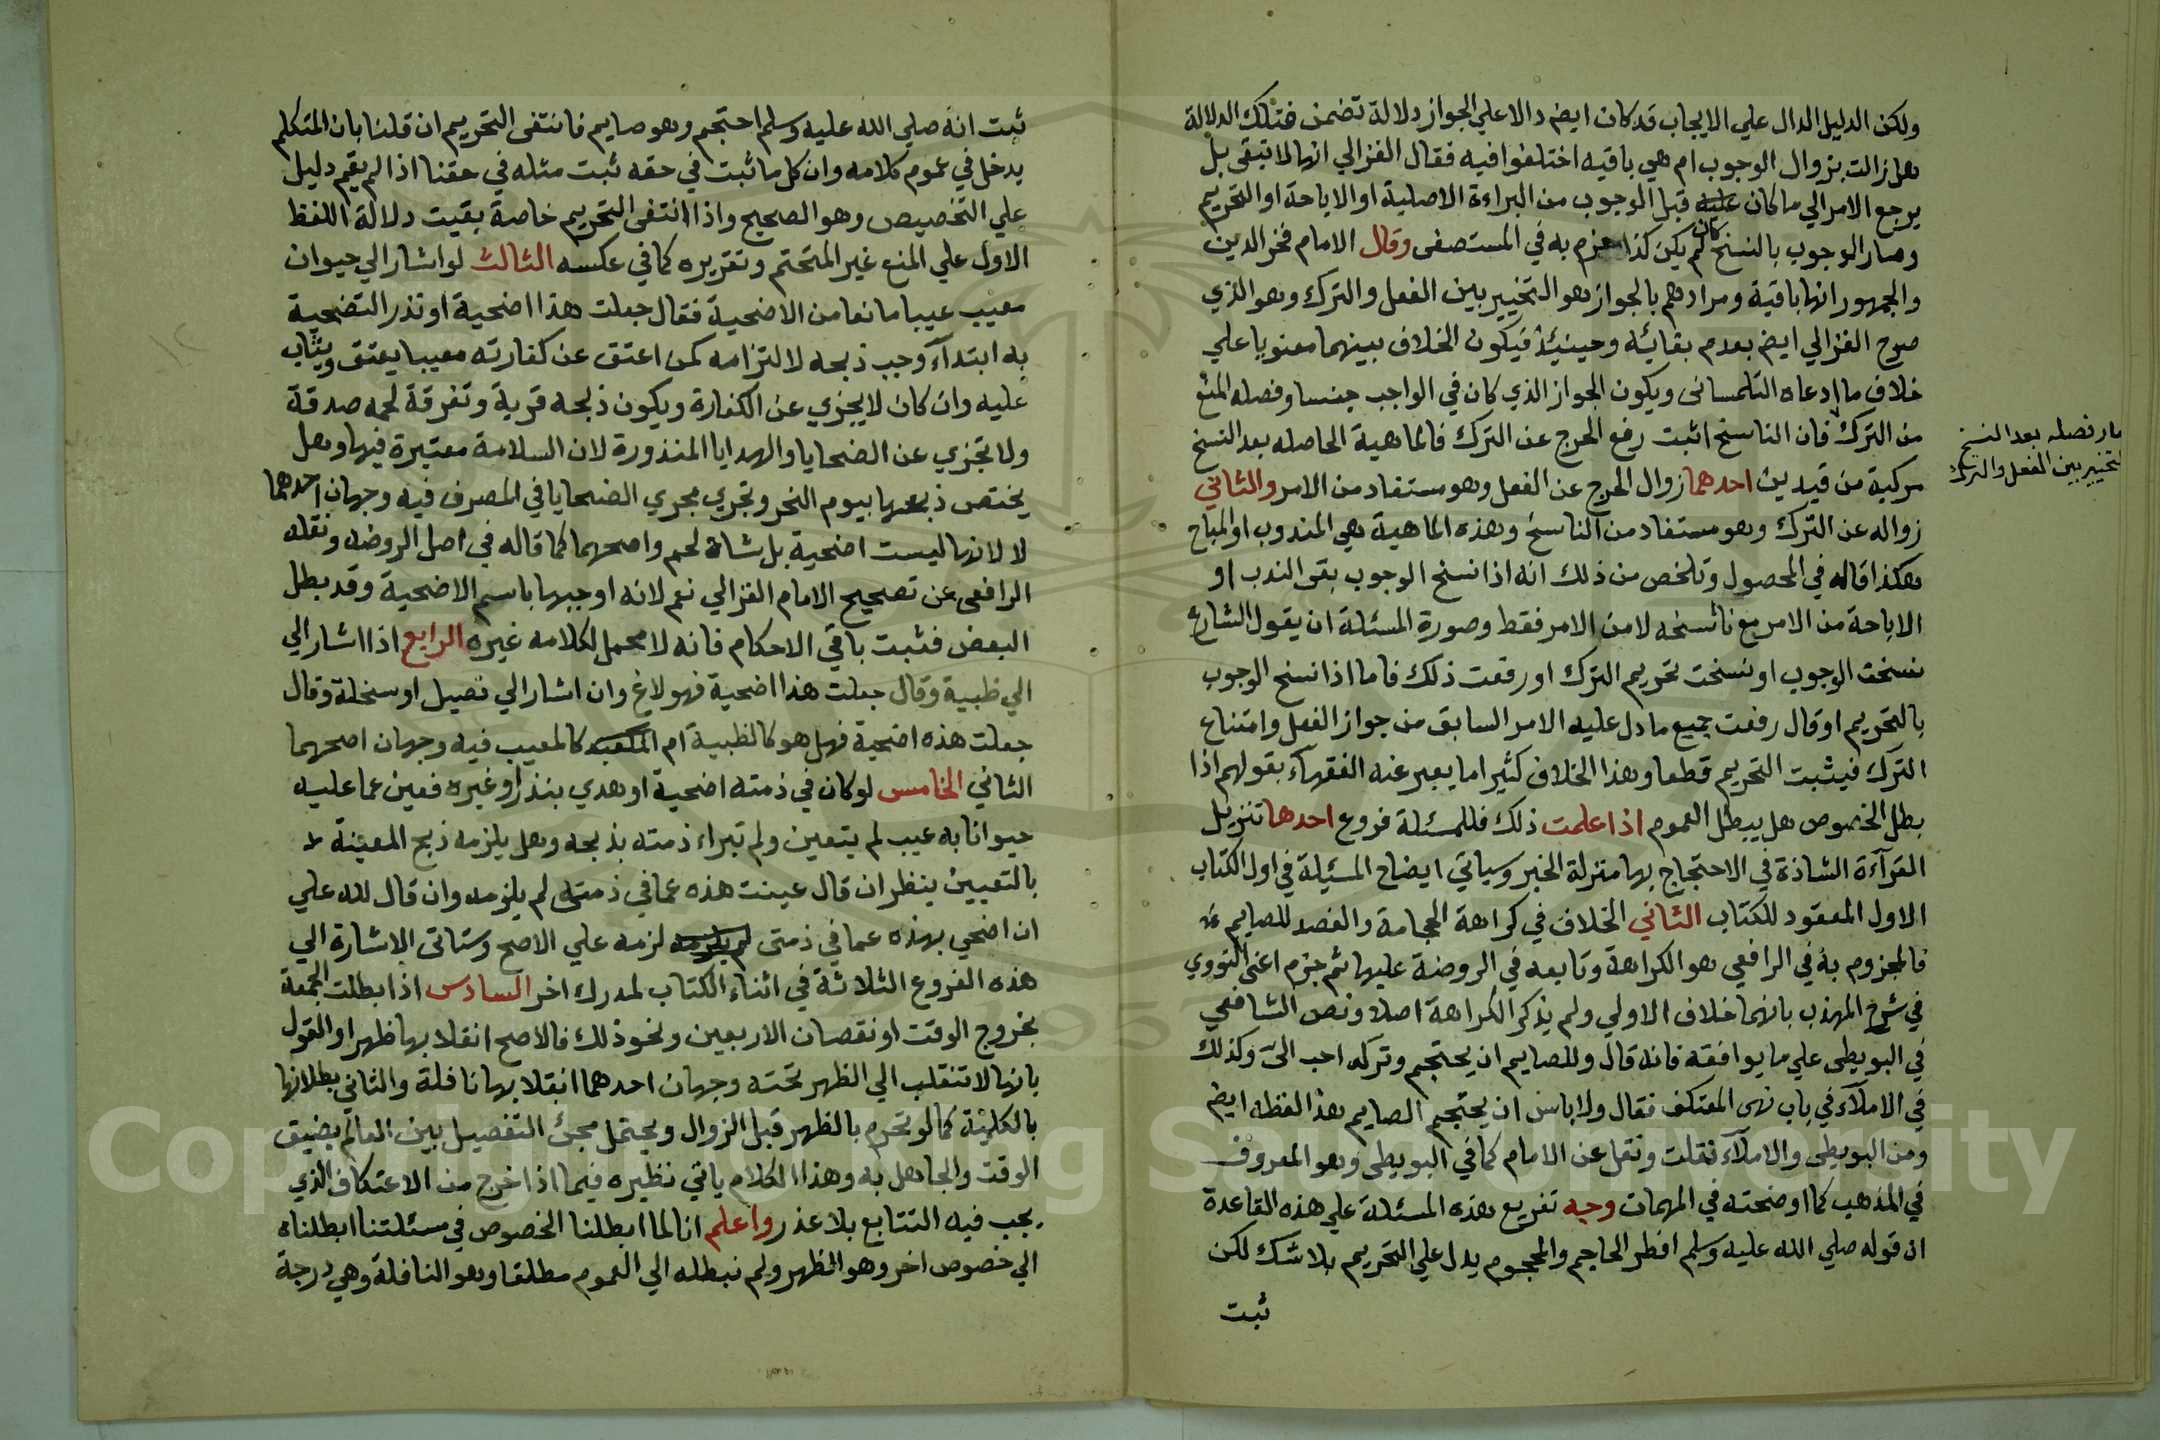 ولكن الدليل الدال علي الايجاب قد كان ايض دالا علي الجواز دلالة تضمن فتلك الدلالة
هل زالت بزوال الوجوب ام هي باقيه اختلفوا فيه فقال الغزالي انها لا تبقى بل
يرجع الامر الي ما كان عليه قبل الوجوب من البراءة الاصلية او الاباحة او التحريم
وصار الوجوب بالنسخ كان لم يكن كذا جزم به في المستصفى وقال الامام فخر الدين
والجمهور انها باقية ومرادهم بالجواز هو التخيير بين الفعل والترك وهو الذي
صرح الغزالي ايض بعدم بقائه وحينئذ فيكون الخلاف بينهما معنويا علي
خلاف ما ادعاه التلمسانى ويكون الجواز الذي كان في الواجب جنسا وفصله المنع
من الترك فان الناسخ اثبت رفع الحرج عن الترك فالماهية الحاصله بعد النسخ
مركبة من قيدين احدهما زوال الحرج عن الفعل وهو مستفاد من الامر والثاني
زواله عن الترك وهو مستفاد من الناسخ وهذه الماهية هي المندوب او المباح
هكذا قاله في المحصول وتلخص من ذلك انه اذا نسخ الوجوب بقى الندب او
الاباحة من الامر مع ناسخه لا من الامر فقط وصورة المسئلة ان يقول الشارع
نسخت الوجوب او نسخت تحريم الترك او رفعت ذلك فاما اذا نسخ الوجوب
بالتحريم او قال رفعت جميع ما دل عليه الامر السابق من جواز الفعل وامتناع
الترك فيثبت التحريم قطعا وهذا الخلاف كثيرا ما يعبر عنه الفقهآء بقولهم اذا
بطل الخصوص هل يبطل العموم اذا علمت ذلك فللمسئلة فروع احدها تنزيل
القرآءة الشاذة في الاحتجاج بها منزلة الخبر وسياتي ايضاح المسئلة في اول الكتاب
الاول المعقود للكتاب الثاني الخلاف في كراهة الحجامة والفصد للصايم
فالمجزوم به في الرافعي هو الكراهة وتابعه في الروضة عليها ثم جزم اعنى النووي
في شرح المهذب بانهما خلاف الاولي ولم يذكر الكراهة اصلا ونص الشافعي
في البويطى علي ما يوافقه فانه قال وللصايم ان يحتجم وتركه احب الىّ وكذلك
في الاملآء في باب نهى المعتكف فقال ولا باس ان يحتجم الصايم هذا لفظه ايض
ومن البويطى والاملآء نقلت ونقل عن الامام كما في البويطى وهو المعروف
في المذهب كما اوضحته في المهمات وجه تفريع هذه المسئلة علي هذه القاعدة
ان قوله صلي الله عليه وسلم افطر الحاجم والمحجوم يدل علي التحريم بلا شك لكن
ثبت
صار فصله بعد النسخ
التخيير بين الفعل والترك
ثبت انه صلي الله عليه وسلم احتجم وهو صايم فانتفى التحريم ان قلنا بان المتكلم
يدخل في عموم كلامه وان كل ما ثبت في حقه ثبت مثله في حقنا اذا لم يقم دليل
علي التخصيص وهو الصحيح واذا انتفى التحريم خاصة بقيت دلالة اللفظ
الاول علي المنع غير المتحتم وتقريره كما في عكسه الثالث لو اشار الي حيوان
معيب عيبا مانعا من الاضحية فقال جعلت هذا اضحية او نذر التضحية
به ابتدآء وجب ذبحه لالتزامه كمن اعتق عن كفارته معيبا يعتق ويثاب
عليه وان كان لا يجزي عن الكفارة ويكون ذبحه قربة وتفرقة لحمه صدقة
ولا تجزي عن الضحايا والهدايا المنذورة لان السلامة معتبرة فيها وهل
يختص ذبحها بيوم النحر وتجري مجري الضحايا في المصرف فيه وجهان احدهما
لا لانها ليست اضحية بل شاة لحم واصحهما كما قاله في اصل الروضه ونقله
الرافعى عن تصحيح الامام الغزالي نعم لانه اوجبها باسم الاضحية وقد بطل
البعض فثبت باقي الاحكام فانه لا محمل لكلامه غيره الرابع اذا اشار الي
الي ظبية وقال جعلت هذا اضحية فهو لاغ وان اشار الي فصيل او سخلة وقال
جعلت هذه اضحية فهل هو كالظبية ام كالمعيب فيه وجهان اصحهما
الثاني الخامس لو كان في ذمته اضحية او هدي بنذر او غيره فعين عما عليه
حيوانا به عيب لم يتعين ولم تبراء ذمته بذبحه وهل يلزمه ذبح المعينة
بالتعيين ينظر ان قال عينت هذه عما في ذمتى لم يلزمه وان قال لله علي
ان اضحي بهذه عما في ذمتى لم يلزمه لزمه علي الاصح وستاتى الاشارة الي
هذه الفروع الثلاثة في اثناء الكتاب لمدرك اخر السادس اذا بطلت الجمعة
بخروج الوقت او نقصان الاربعين ونحو ذلك فالاصح انقلابها ظهرا والقول
بانها لا تنقلب الي الظهر تحته وجهان احدهما انقلابها نافلة والثاني بطلانها
بالكلية كما لو تحرم بالظهر قبل الزوال ويحتمل مجئ التفصيل بين العالم بضيق
الوقت والجاهل به وهذا الكلام ياتي نظيره فيما اذا خرج من الاعتكاف الذي
يجب فيه التتابع بلا عذر واعلم انا لما ابطلنا الخصوص في مسئلتنا ابطلناه
الي خصوص اخر وهو الظهر ولم نبطله الي العموم مطلقا وهو النافلة وهي درجة
Copyright © King Saud University
1957